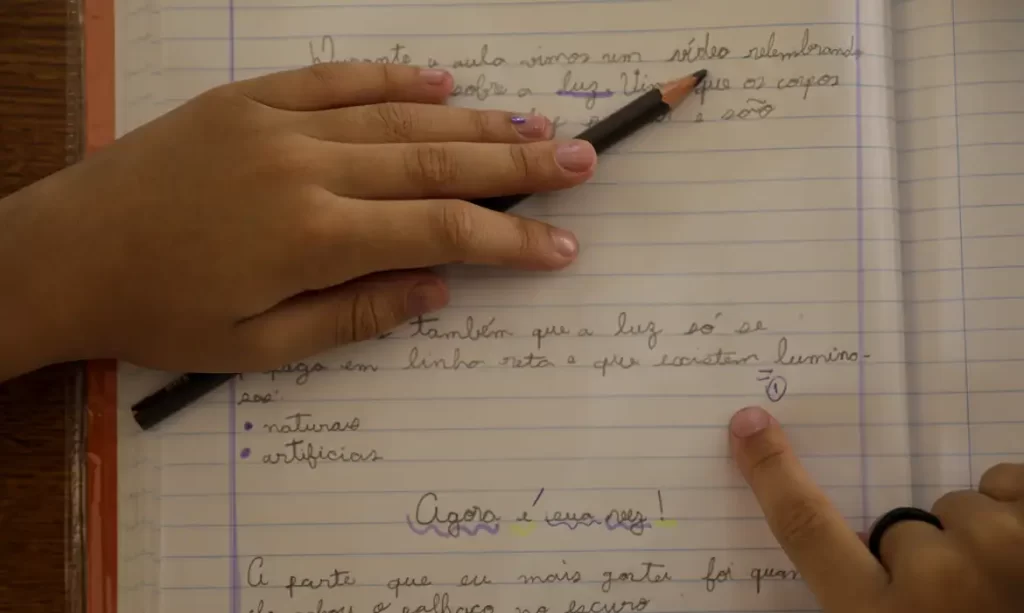 Durante a aula vimos um vídeo relembrando
sobre a luz. que os corpos
e são
também que a luz só se
em linha reta e que existem lumino-
sos:
1
• naturais
• artificias
Agora é sua vez!
A parte que eu mais gostei foi
o palhaço no escuro